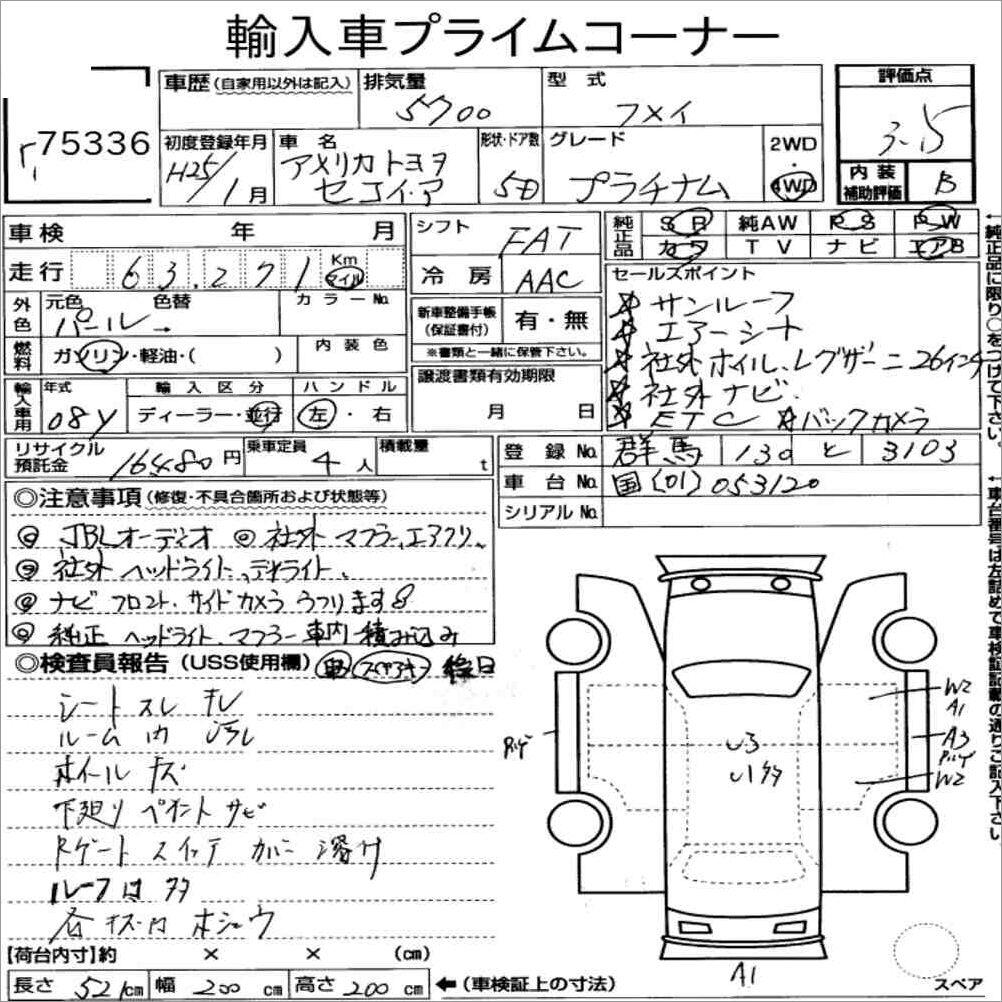 輸入車プライムコーナー
75336
車歴 (自家用以外は記入)
排気量
5700
型式
フメイ
評価点
3.5
初度登録年月
H25/1月
車名
アメリカトヨタ
セコイア
形状・ドア数
5D
グレード
プラチナム
2WD
・
4WD
内装
補助評価
B
車検 年 月
走行 63,271 Km マイル
シフト
FAT
冷房
AAC
純正品
SR 純AW PS PW
カワ TV ナビ エアB
外色
元色 色替 カラーNo.
パール →
燃料
ガソリン・軽油・( )
内装色
新車整備手帳
(保証書付)
有・無
※書類と一緒に保管下さい。
セールスポイント
☆ サンルーフ
☆ エアーシート
☆ 社外ホイル、レグザーニ 26インチ
☆ 社外ナビ
☆ ETC ☆バックカメラ
輸入車用
年式
08y
輸入区分
ディーラー・並行
ハンドル
左・右
譲渡書類有効期限
月 日
リサイクル
預託金
16480円
乗車定員
4人
積載量
t
登録No.
群馬 130 と 3103
車台No.
国(01)053120
シリアルNo.
◎注意事項(修復・不具合箇所および状態等)
◎ JBLオーディオ ◎ 社外マフラー、エアクリ、
◎ 社外ヘッドライト、デイライト、
◎ ナビ フロント、サイドカメラ うつります
◎ 純正ヘッドライト、マフラー車内積み込み
◎検査員報告(USS使用欄)
シートスレ キレ
ルーム内 汚レ
ホイールキズ
下廻り ペイント サビ
Rゲート スイッチ カバー 溶け
ルーフ凹多
各キズ凹 ホシュウ
【荷台内寸】約 × × (cm)
長さ 521cm 幅 200cm 高さ 200cm ←(車検証上の寸法)
←純正品に限り○をつけて下さい。
←車台番号は左詰めで車検証記載の通りご記入下さい。
W2
A1
A3
W2
U3
U1多
A1
スペア